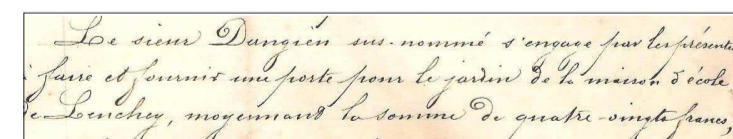 Le sieur Dangien sus-nommé s'engage par les présentes
à faire et fournir une porte pour le jardin de la maison d'école
de Lenchey, moyennant la somme de quatre-vingts francs,